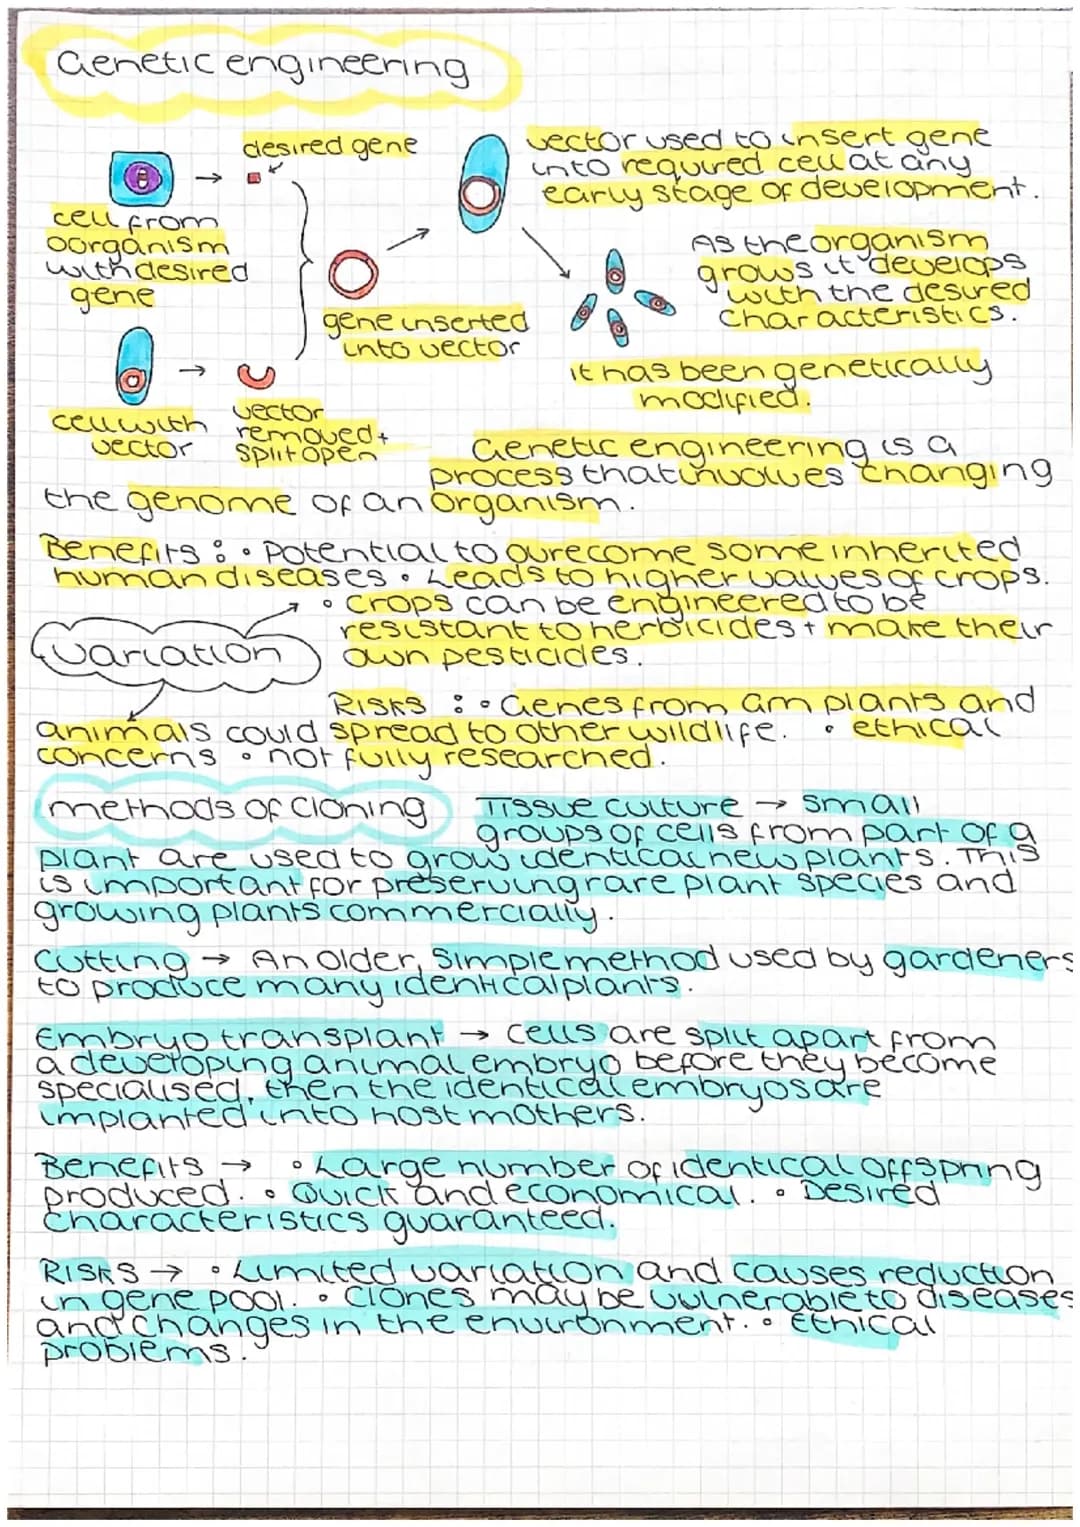 Genetic engineering
desired gene
vector used to insert gene
into required cell at any
early stage of development.
cell from
oorganism
with desired
gene
As the organism
grows it develops
with the desired
characteristics.
gene inserted
into vector
it has been genetically
modified.
cell with
vector
vector
removed +
split open
Genetic engineering is a
process that involves changing
the genome of an organism.
Benefits : • Potential to ovrecome some inherited
human diseases • Leads to higher values of crops.
• crops can be engineered to be
resistant to herbicides + make their
own pesticides.
variation
Risks : • Genes from GM plants and
animals could spread to other wildlife. • ethical
concerns • not fully researched.
methods of cloning
Tissue culture → small
groups of cells from part of a
plant are used to grow identical new plants. This
is important for preserving rare plant species and
growing plants commercially.
Cutting → An older, simple method used by gardeners
to produce many identical plants.
Embryo transplant → cells are split apart from
a developing animal embryo before they become
specialised, then the identical embryos are
implanted into host mothers.
Benefits → • Large number of identical offspring
produced. • Quick and economical. • Desired
characteristics guaranteed.
Risks → • Limited variation and causes reduction
in gene pool. • Clones may be vulnerable to diseases
and changes in the environment. • Ethical
problems.